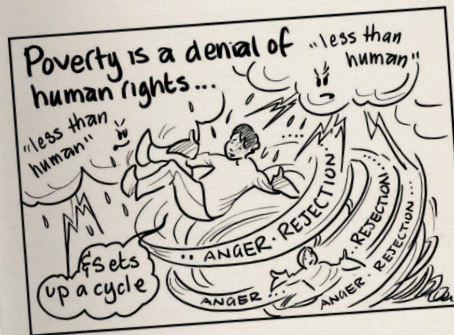 Poverty is a denial of
human rights...
"less than
human"
"less than
human"
& sets
up a cycle
.. ANGER. REJECTION
ANGER ... REJECTION..
ANGER . REJECTION...